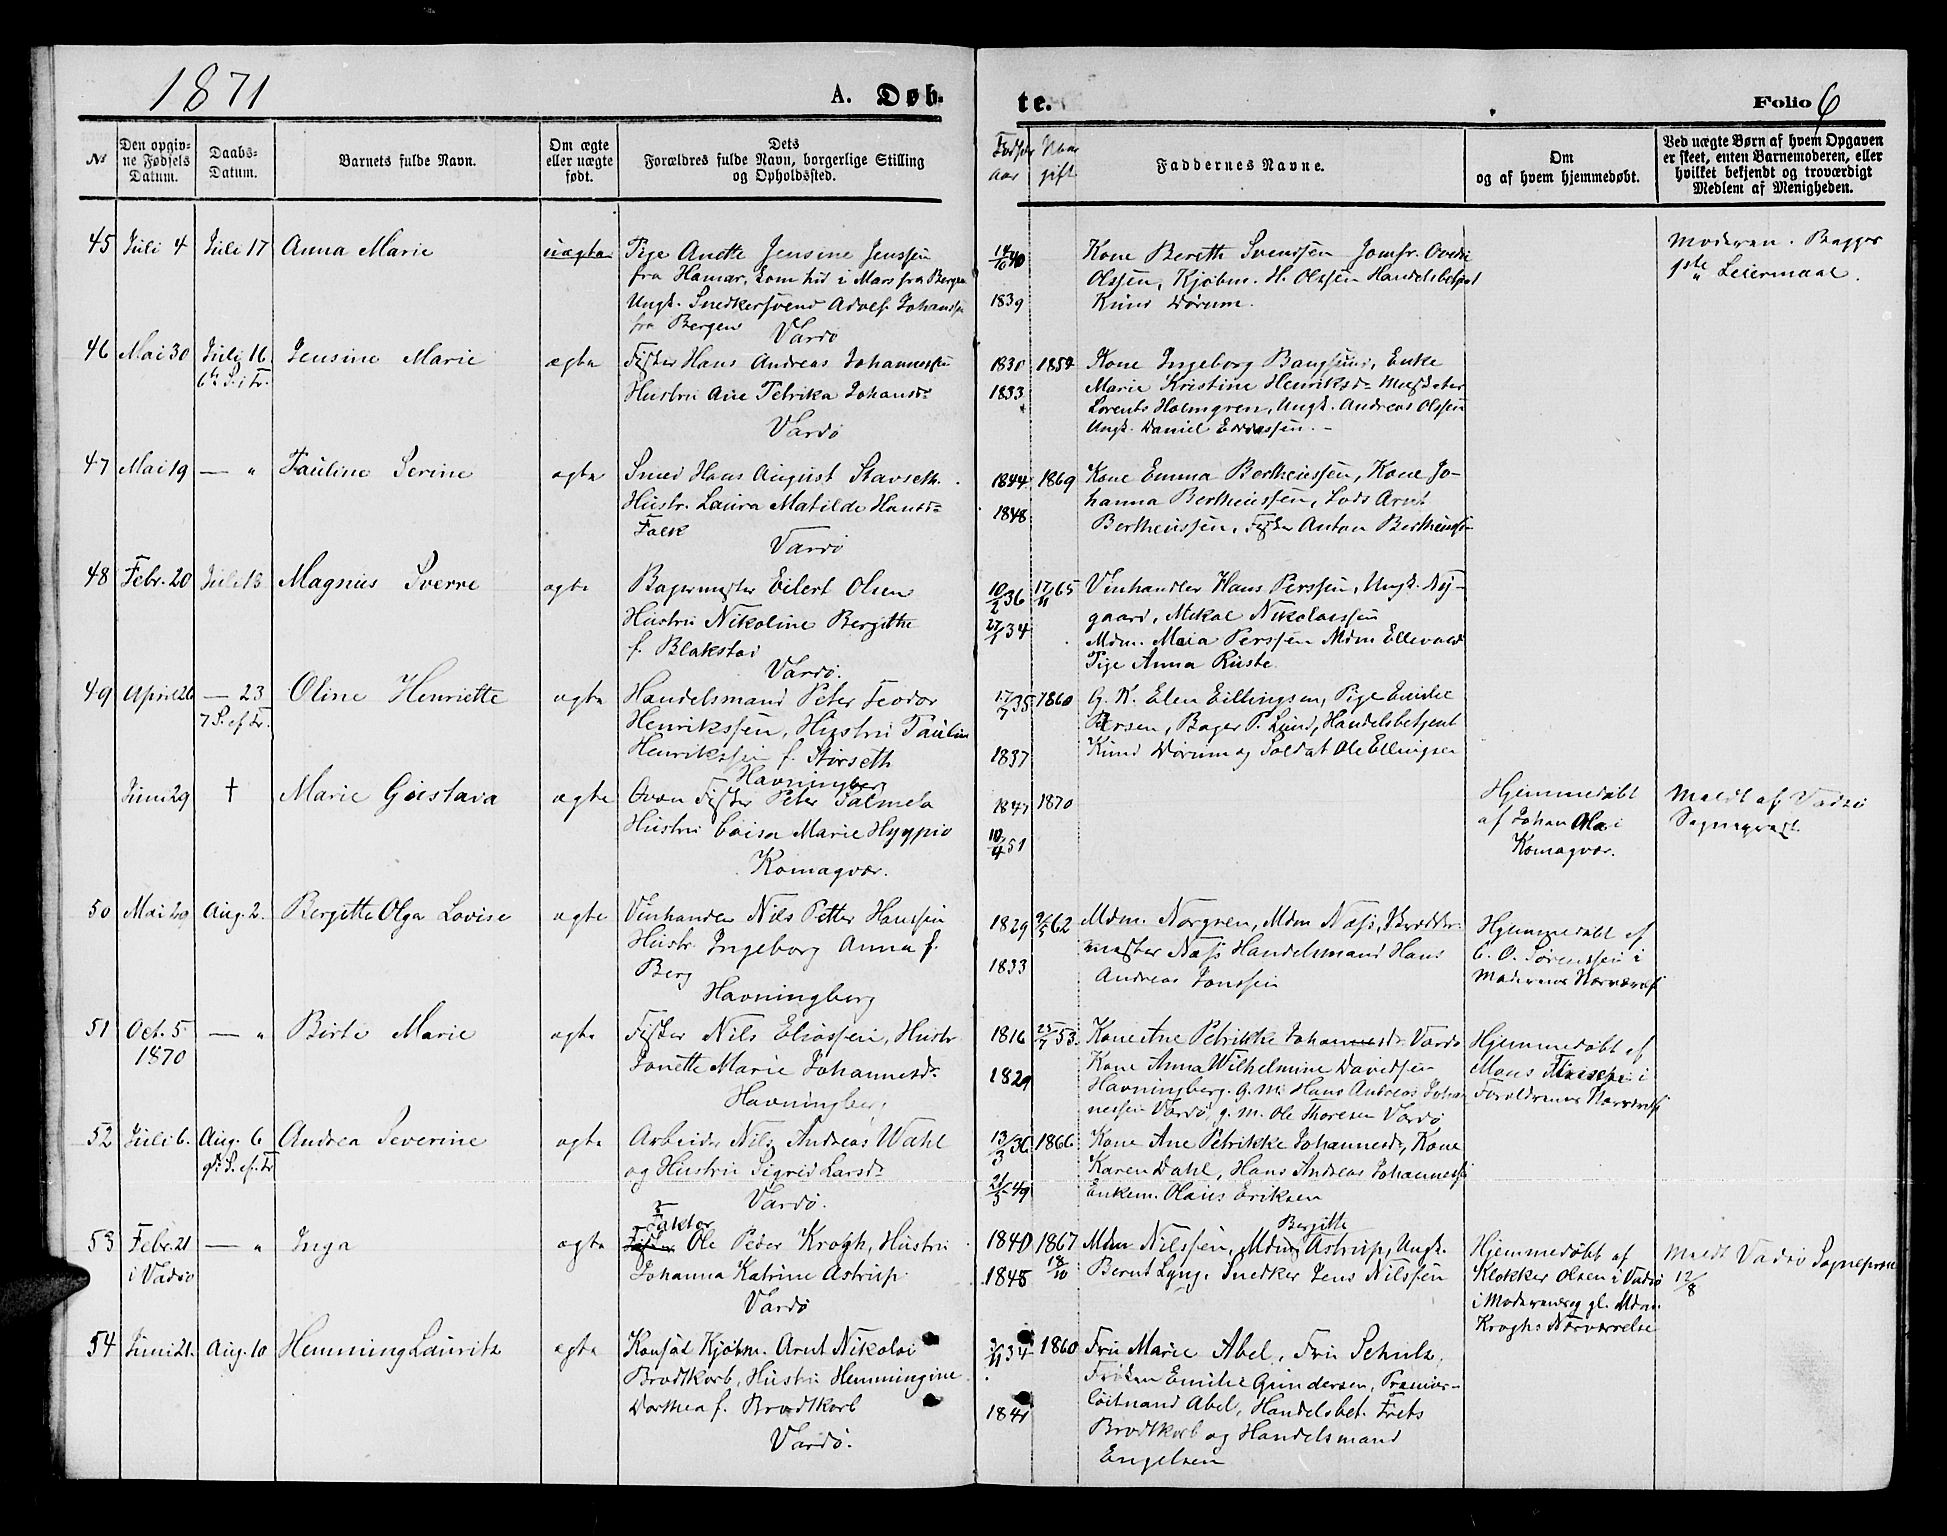 1871
A. Døb-
te.
Folio 6
№
Den opgiv-
ne Fødsels
Datum.
Daabs-
Datum.
Barnets fulde Navn.
Om ægte
eller uægte
født.
Dets
Forældres fulde Navn, borgerlige Stilling
og Opholdssted.
Fødsels
aar
Naar
gift
Faddernes Navne.
Om
og af hvem hjemmedøbt.
Ved uægte Børn af hvem Opgaven
er skeet, enten Barnemoderen, eller
hvilket bekjendt og troværdigt
Medlem af Menigheden.
45 Juli 4 Juli 17 Anna Marie uægte Pige Anette Jensine Jenssen
fra Hamar, kom hid i Mars fra Bergen
Ungk. Snedkersvend Adolf Johanssen
fra Bergen Vardö
1839
Kone Bereth Svendsen Jomfr.
Olssen, Kjøbm. H. Olssen Handelsbetjent
Knud Dørum.
Moderen.
1ste Leiermaal.
46 Mai 30 Juli 16 Jensine Marie ægte Fisker Hans Andreas Johannessen
6te S. i Tr.
Hustru Ane Petrika Johansd.
Vardö
1830 1854
1833
Kone Ingeborg Bangsund, Enke
Marie Kristine Henriksd.
Lorents Holmgren, Ungk. Andreas Olssen
Ungk. Daniel
47 Mai 19 — " Pauline Serine ægte Smed Hans August Stavseth.
Hustr. Laura Matilde Hansd.
Falk
Vardö
1844 1869
1848
Kone Emma Bertheussen, Kone Jo-
hanna Bertheussen, Lods Arnt
Bertheussen, Fisker Anton Bertheuss.
48 Febr. 20 Juli 13 Magnus Sverre ægte Bagermester Eilert Olsen
Hustru Nikoline Bergitte
f. Blakstad
Vardö.
10/2 36 17/11 65
34
Vinhandler Hans Perssen, Ungk. Ny-
gaard, Mikal Nikolaissen
Mdm. Maia Perssen Mdm Ellevold
Pige Anna Ruste
49 April 26 — 23 Oline Henriette ægte Handelsmand Peter Feodor
7 S. ef. Tr.
Henrikssen, Hustru Paulin
Henrikssen f. Storseth
Havningberg
17/7 35 1860
1837
G. K. Elen Ellingsen, Pige Emilie
Larsen, Bager P. Lund, Handelsbetjent
Knud Dørum og Soldat Ole Ellingsen
Juni 29 † Marie Gustava ægte Qvæn Fisker Peter Palmela
Hustru Caisa Marie Hyppiö
Komagvær.
1847 1870
10/4 51
Hjemmedøbt
af Johan Olai
Komagvær.
Meldt af Vadsö
Sognepræst.
50 Mai 29 Aug. 2. Bergitte Olga Lovise ægte Vinhandler Nils Petter Hanssen
Hustr. Ingeborg Anna f.
Berg
Havningberg
1829 9/5 62
1833
Mdm. Norgren, Mdm Næss,
mester Næss Handelsmand Hans
Andreas Jonssen
Hjemmedøbt af
C. O. Sørenssen i
Moderens Nærværelse
51 Oct. 5 — " Birte Marie ægte Fisker Nils Eliassen, Hustr
1870
Jonette Marie Johannesd.
Havningberg
1816 25/7 53.
1829
Kone Ane Petrikke Johannesd. Vardö
Kone Anna Wilhelmine Davidsen
Havningberg, G. m. Hans Andreas Johan-
nessen Vardö, g. m. Ole Thoresen Vardö
Hjemmedøbt af
Mons i
Forældrenes Nærværelse
52 Juli 6. Aug. 6 Andrea Severine ægte Arbeider Nils Andreas Wahl
9de S. ef. Tr
og Hustru Sigrid Larsd.
Vardö.
13/3 36 1866
21/5 49
Kone Ane Petrikke Johannesd., Kone
Karen Dahl, Hans Andreas Johannessen
Enkem. Olaus Eriksen
53 Febr. 21 — " Inga ægte Faktor
Fisker Ole Peder Krogh, Hustru
i Vadsö
Johanna Katrine Astrup.
Vardö
1840 1867
1848 18/10
Bergitte
Mdm Nilssen, Mdm Astrup, Ungk.
Bernt Lyng. Snedker Jens Nilssen
Hjemmedøbt af
Klokker Olsen i Vadsö
i Moderens og gl. Mdm.
Kroghs Nærværelse
Meldt Vadsö Sognepræst
12/8
54 Juni 21. Aug. 10 Hemming Lauritz ægte Konsul Kjøbm. Arnt Nikolai
Brodtkorb, Hustru Hemmingine
Dorthea f. Brodtkorb
Vardö.
34 1860
1841
Fru Marie Abel, Fru Schulz,
Frøken Emilie Gundersen, Premier-
løitnand Abel, Handelsbet. Frets
Brodtkorb og Handelsmand
Engelsen